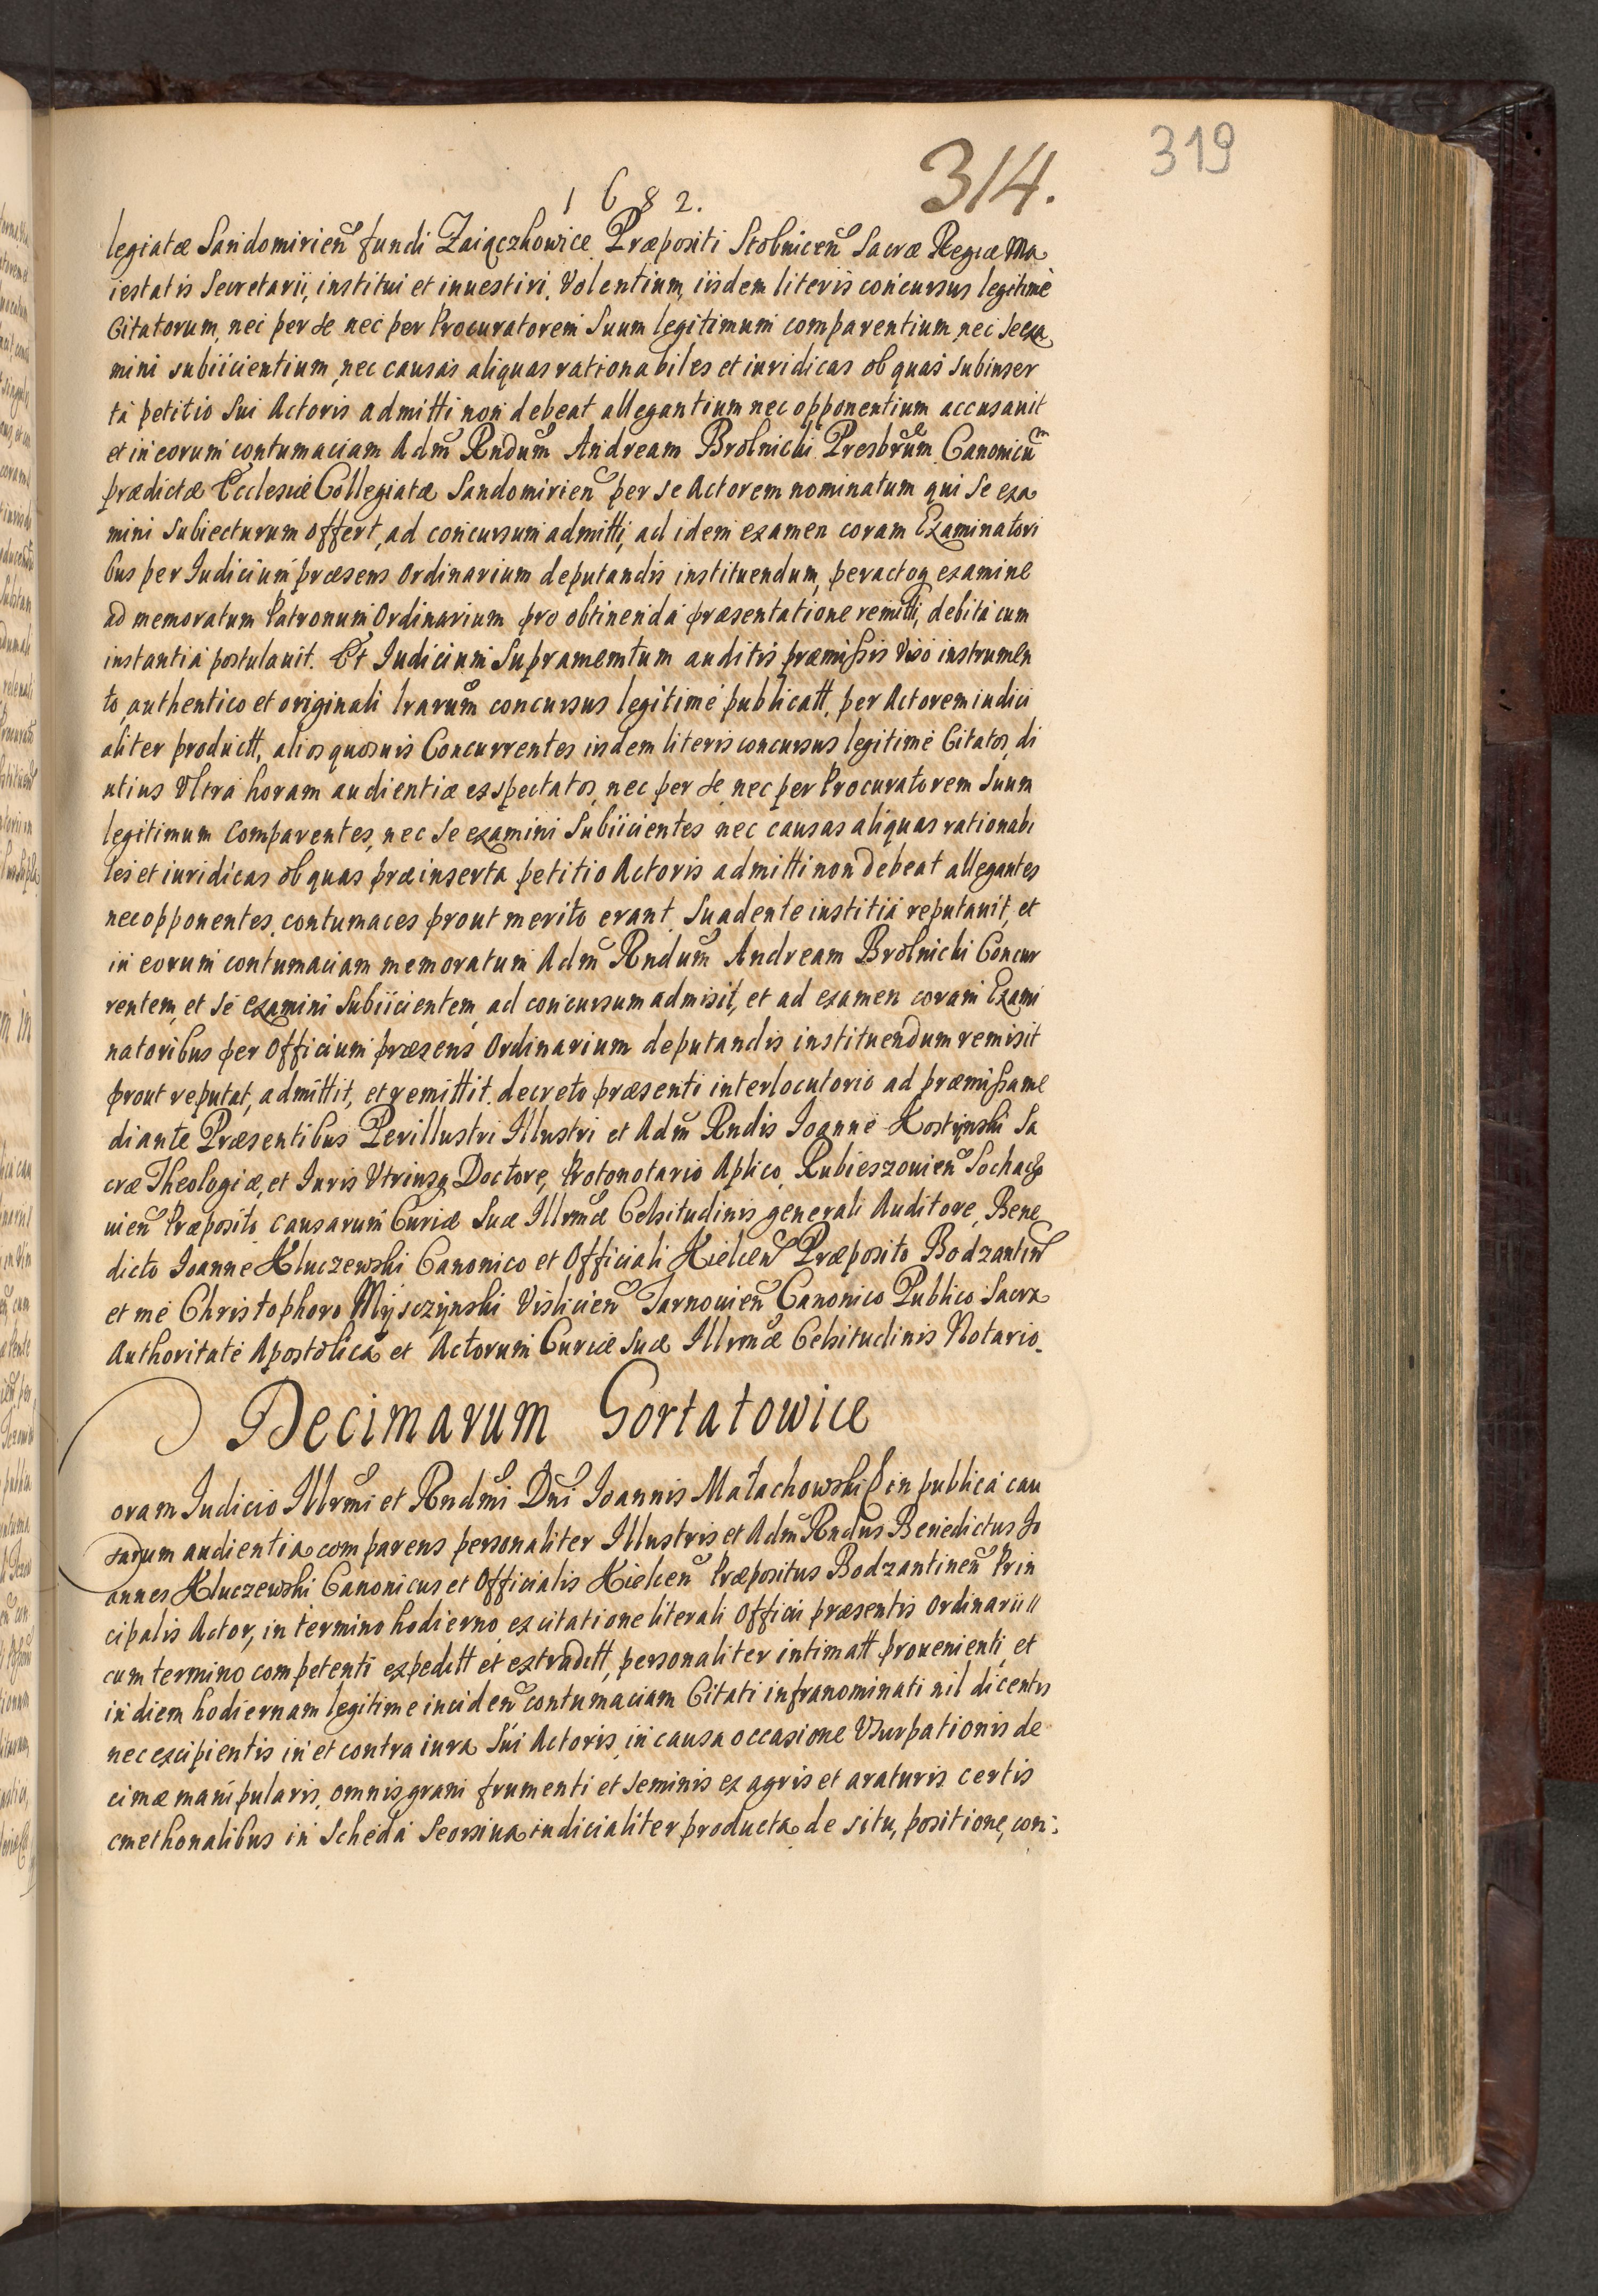 319
314.
1682.
legiatæ Sandomirien̄ fundi Zaiączkowice Præpositi Stobnicen̄ Sacræ Regiæ Ma
iestatis Secretarii, institui et inuestiri Volentium, iisdem literis concursus legitimè
Citatorum, nec per se nec per Procuratorem Suum legitimum comparentium, nec se exa
mini subiicientium, nec causas aliquas rationabiles et iuridicas ob quas subinser
ta petitio Sui Actoris admitti non debeat allegantium nec opponentium accusauit
et in eorum contumaciam Adm̄ Rndum̄ Andream Brolnicki Presbrum̄ Canonicum
prædictæ Ecclesiæ Collegiatæ Sandomirien̄ per se Actorem nominatum qui Se exa
mini Subiecturum offert, ad concursum admitti, ad idem examen coram Examinatori
bus per Iudicium præsens Ordinarium deputandis instituendum, peractoq examine
ad memoratum Patronum Ordinarium pro obtinenda præsentatione remitti, debita cum
instantia postulauit. Et Iudicium Supramemtum auditis præmissis Viso instrumen
to authentico et originali lrarum̄ concursus legitimè publicatt, per Actorem iudici
aliter productt, alios quosuis Concurrentes iisdem literis concursus legitimè Citatos, di
utius Vltra horam audientiæ exspectatos, nec per se, nec per Procuratorem Suum
legitimum Comparentes, nec Se examini Subiicientes nec causas aliquas rationabi
les et iuridicas ob quas præinserta petitio Actoris admitti non debeat allegantes
nec opponentes, contumaces prout merito erant, Suadente iustitia reputauit, et
in eorum contumaciam memoratum Adm̄ Rndum̄ Andream Brolnicki Concur
rentem, et se examini Subiicientem, ad concursum admisit, et ad examen coram Exami
natoribus per Officium præsens Ordinarium deputandis instituendum remisit
prout reputat, admittit, et remittit, decreto præsenti interlocutorio ad præmissa me
diante Præsentibus Perillustri Illustri et Adm̄ Rndis Ioanne Kostynski Sa
cræ Theologiæ, et Iuris Vtriusq Doctore, Protonotario Aplico, Rubieszouien̄ Sochaczo
uien̄ Præposito, causarum Curiæ Suæ Illrmæ Celsitudinis generali Auditore, Bene
dicto Ioanne Kluczewski Canonico et Officiali Kielcen̄ Præposito Bodzantin̄
et me Christophoro Myjsczynski Vislicien̄ Tarnouien̄ Canonico Publico Sacra
Authoritate Apostolica et Actorum Curiæ Suæ Illrmæ Celsitudinis Notario.
Decimarum Gortatowice
oram Iudicio Illrmi et Rndmi Dni Ioannis Małachowski in publica cau
sarum audientia comparens personaliter Illustris et Adm̄ Rndus Benedictus Io
annes Kluczewski Canonicus et Officialis Kielcen̄ Præpositus Bodzantinen̄ Prin
cipalis Actor, in termino hodierno ex citatione literali Officii præsentis Ordinarii
cum termino competenti expeditt et extraditt, personaliter intimatt prouenienti, et
in diem hodiernam legitime inciden̄ contumaciam Citati infranominati nil dicentis
nec excipientis in et contra iura Sui Actoris, in causa occasione Vsurpationis de
cimæ manipularis, omnis grani frumenti et Seminis ex agris et araturis certis
cmethonalibus in Scheda Seorsiua iudicialiter producta de situ, positione, con: